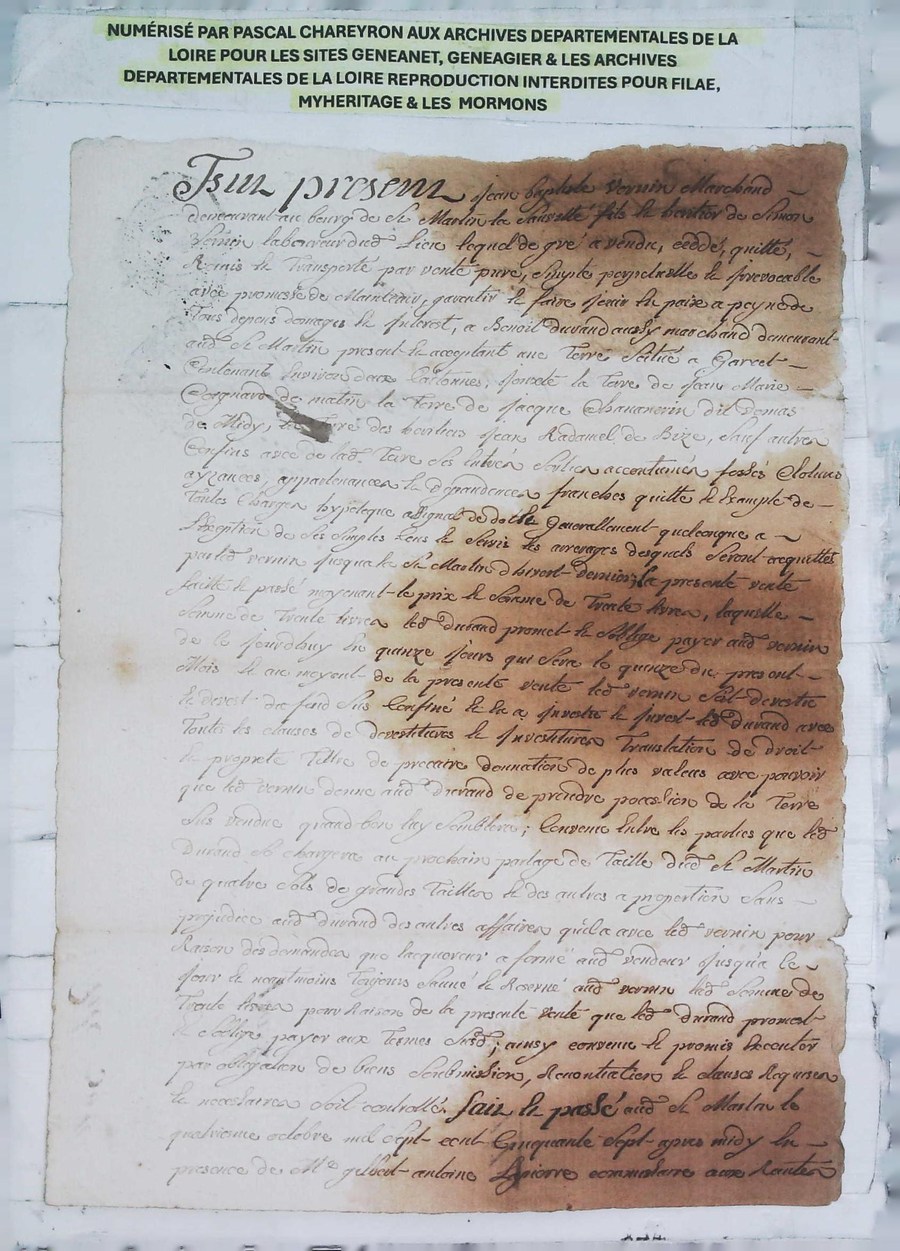 NUMÉRISÉ PAR PASCAL CHAREYRON AUX ARCHIVES DEPARTEMENTALES DE LA
LOIRE POUR LES SITES GENEANET, GENEAGIER & LES ARCHIVES
DEPARTEMENTALES DE LA LOIRE REPRODUCTION INTERDITES POUR FILAE,
MYHERITAGE & LES MORMONS
Fut present Jean baptiste vernin Marchand
demeurant au bourg de St Martin la Sauveté fils et heritier de Simon
Vernin laboureur dud Lieu lequel de gré a vendu, ceddé, quitté,
Remis et Transporté par vente pure, Simple perpetuelle et Irrevocable
avec promesse de Maintenir, garentir et faire Jouir en paix a peyne de
Tous depens domages et Interest, a Benoit durand aussy marchand demeurant
aud St Martin present et acceptant une Terre Scitué a
Contenant Environ deux Cartonnes, Joncte la Terre de Jean Marie
de matin la Terre de Jacque dit
de Midy, Terre des heritiers Jean de Bize, Sauf autres
Confins avec de lad. Terre Ses Entrées Sorties accoutumées fossés Clotures
ayzances, appartenances et Dependences franches quitte et Exempte de
Toutes Charges hypoteque Generallement quelconque a
L'exeption de Ses Simples Cens et Servis les arrerages desquels Seront acquittés
par led vernin Jusqua la St Martin d'hivert dernier, la presente vente
faitte et passé moyenant le prix et Somme de Trente livres, laquelle
Somme de Trente livres led durand promet et Soblige payer aud vernin
de ce Jourdhuy En quinze Jours qui Sera le quinze du present
Mois et au moyent de la presente vente led vernin Sest devestu
et devest du fond Sus Confiné et En a Investi et Invest led durand avec
Toutes les clauses de devestitures et Investitures Translation de droit
de propriété Tiltre de precaire donnation de plus valeur avec pouvoir
que led vernin donne aud durand de prendre possession de la Terre
Sus vendue quand bon luy Semblera; Convenu Entre les parties que led
Durand Se chargera au prochain partage de Taille dud St Martin
de quatre Sols de grandes Tailles et des autres a proportion Sans
prejudice aud durand des autres affaires quil a avec led vernin pour
Raison des demandes que lacquereur a formé aud vendeur Jusqu'a ce
Jour et neantmoins Toujours Sauvé et Reservé aud vernin lad Somme de
Trente livres pour Raison de la presente vente que led durand promet
Soblige payer aux Termes Susd; ainsy convenu et promis Executer
par obligation de biens Soubmission, Renontiation et clauses Requises
et necessaires Soit controllé. fait et passé aud St Martin le
quatrieme octobre mil Sept cent Cinquante Sept apres midy En
presence de Me gilbert antoine Lapierre commissaire aux Rentes